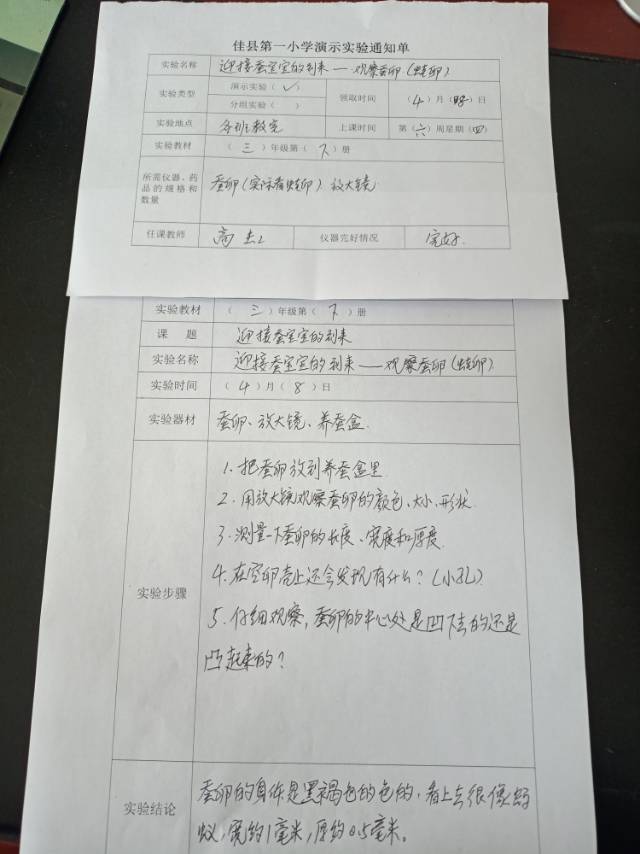 佳县第一小学演示实验通知单
实验名称 迎接蚕宝宝的到来——观察蚕卵(蛙卵)
实验类型 演示实验(✓) 领取时间 (4)月( )日
分组实验( )
实验地点 各班教室 上课时间 第(六)周星期(四)
实验教材 (三)年级第(下)册
所需仪器、药
品的规格和
数量
蚕卵(实际看蛙卵) 放大镜
任课教师 高 仪器完好情况 完好.
实验教材 (三)年级第(下)册
课 题 迎接蚕宝宝的到来
实验名称 迎接蚕宝宝的到来——观察蚕卵(蛙卵)
实验时间 (4)月(8)日
实验器材 蚕卵、放大镜、养蚕盒.
实验步骤
1.把蚕卵放到养蚕盒里
2.用放大镜观察蚕卵的颜色、大小、形状.
3.测量一下蚕卵的长度、宽度和厚度.
4.在空卵壳上还会发现有什么?(小孔)
5.仔细观察,蚕卵的中心处是凹下去的还是
凸起来的?
实验结论
蚕卵的身体是黑褐色的色的,看上去很像蚂
蚁,宽约1毫米,厚约0.5毫米。